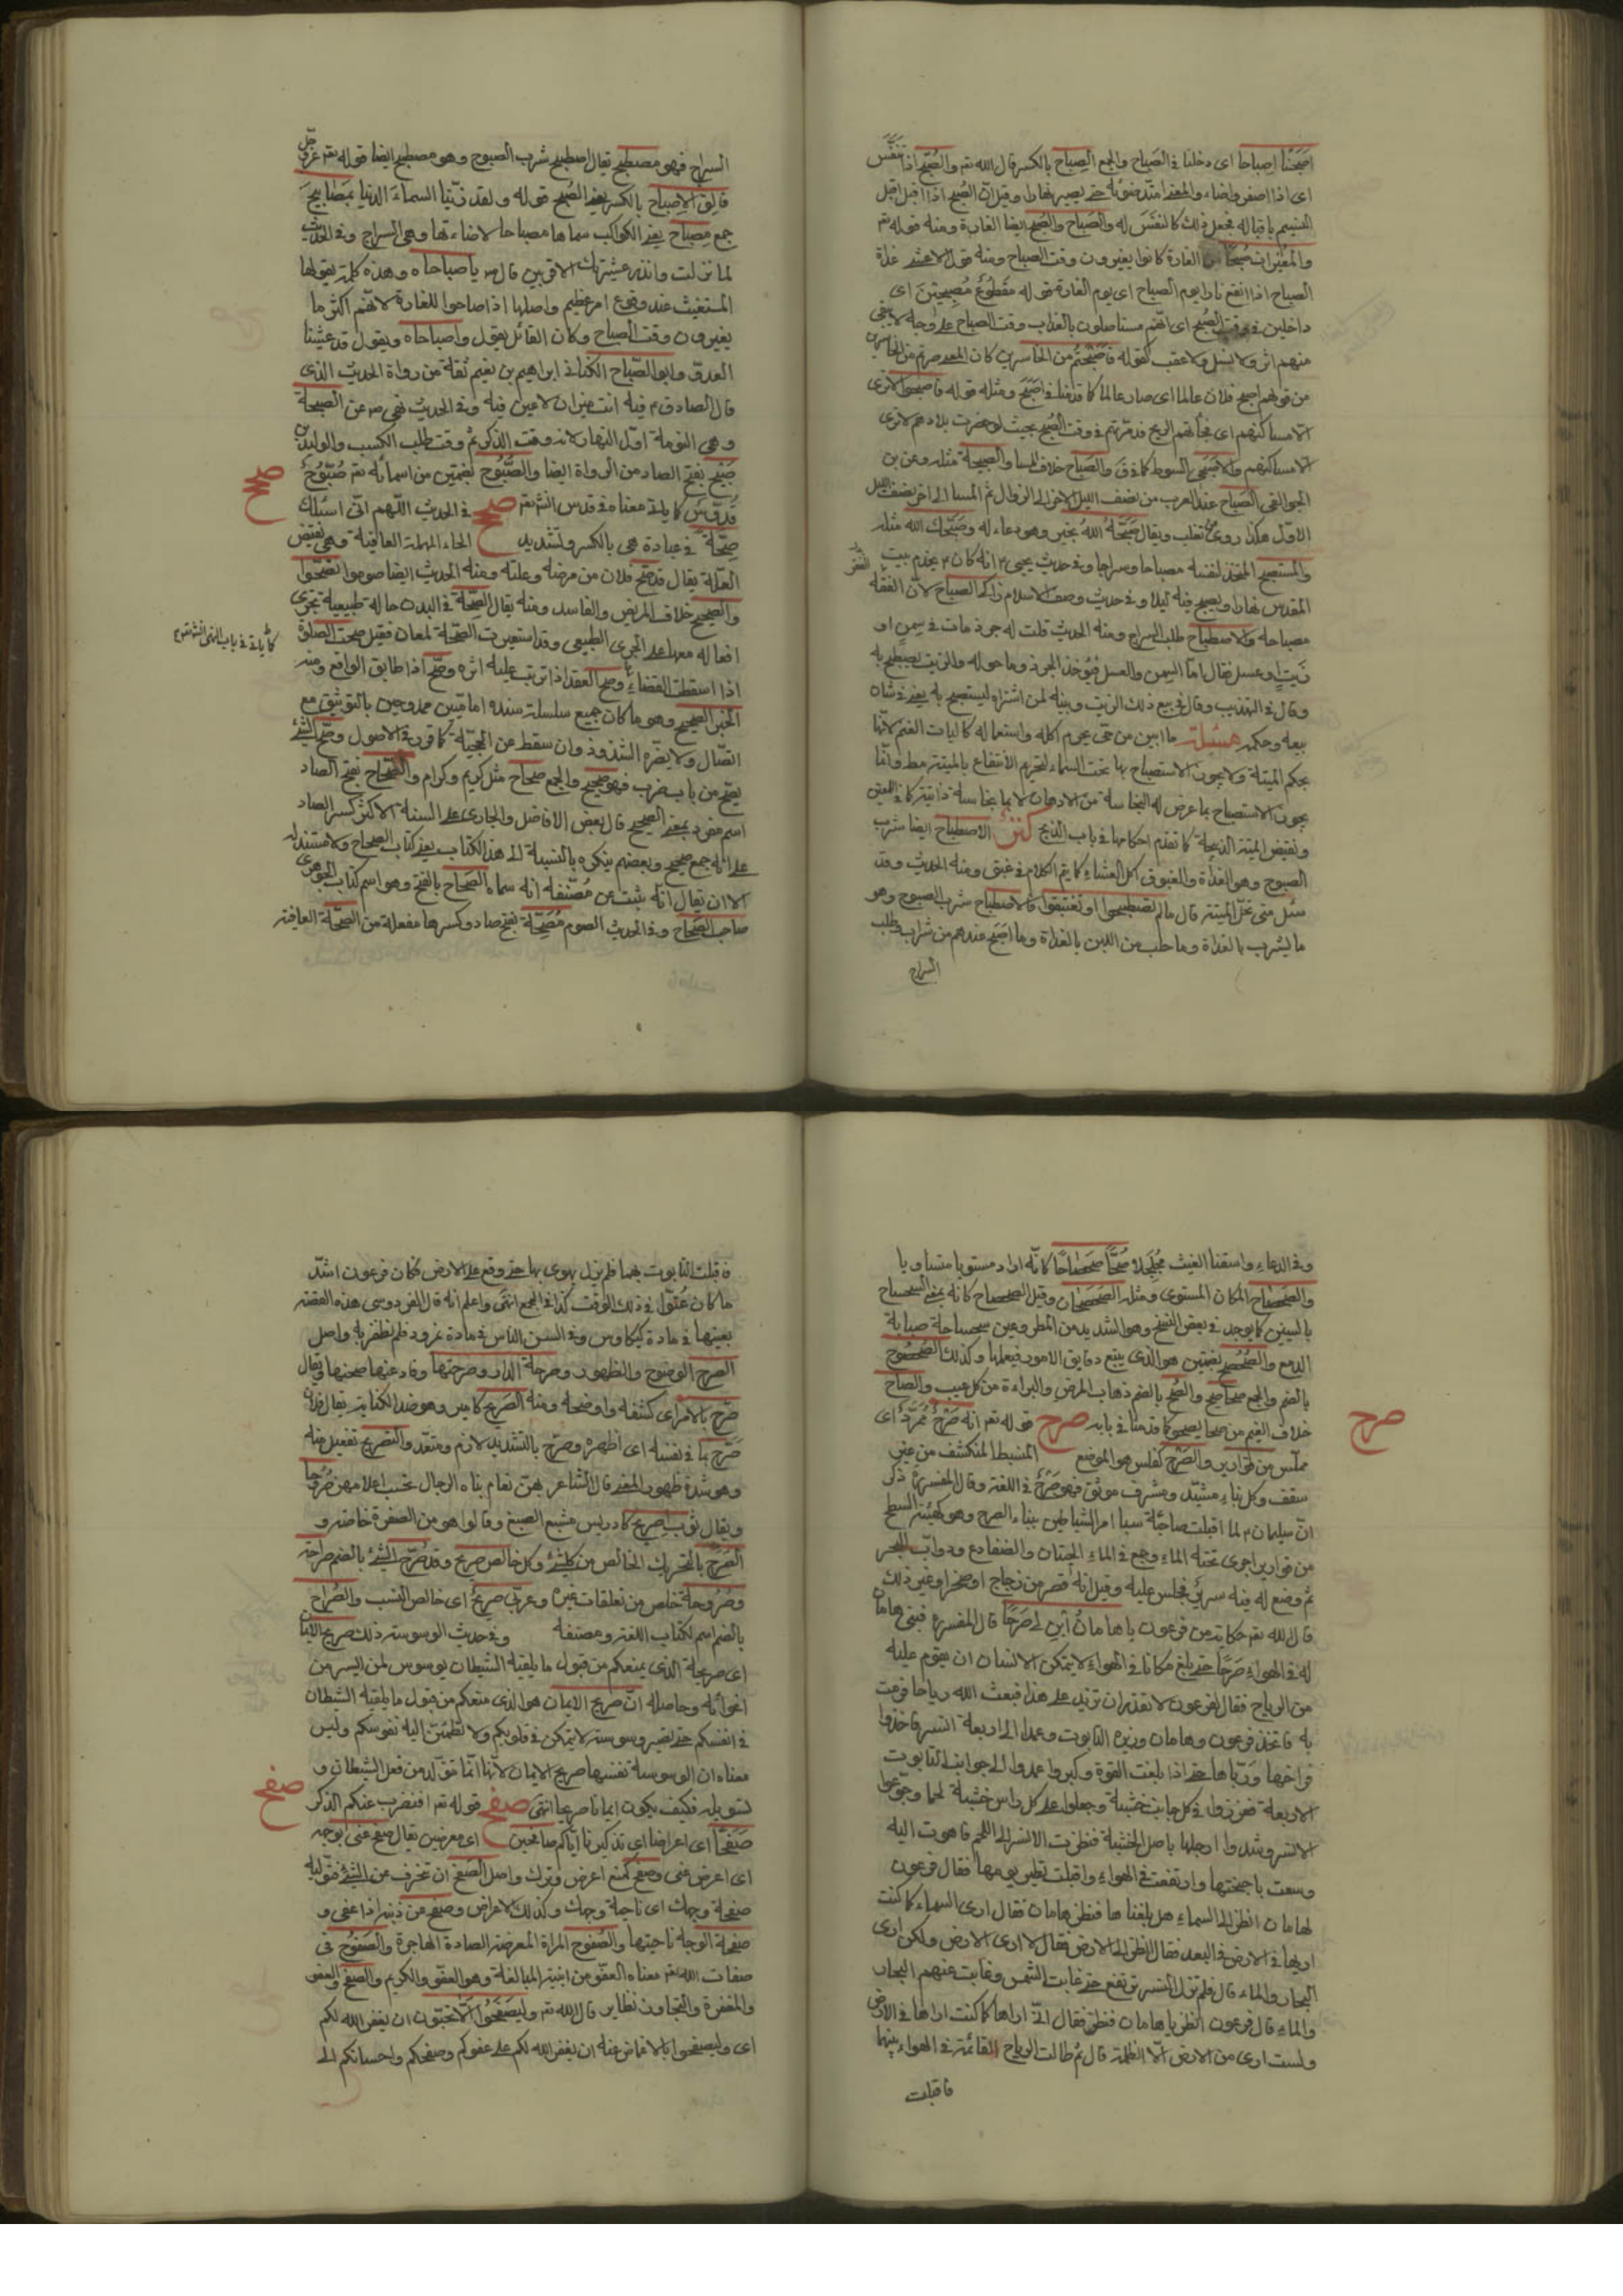 اصبحنا اصباحا اى دخلنا فى الصباح والجمع الصِباح بالكسر قال الله تع والصُبْح اذا تَنَفَّسَ
اى اذا اصفر واضاء والمعنى امتد ضوئه حتى يصير نهارا وقيل ان الصبح اذا اقبل اقبل
النسيم باقباله فجعل ذلك كالنفَس له والصَباح والصُبح ايضا الغارة ومنه قوله تع
والمغيرات صبحًا من الغارة كانوا يغيرون وقت الصباح ومنه قول الاعشى غداة
الصباح اذا النقع ثارا يوم الصباح اى يوم الغارة قوله مقطوعٌ مُصبِحينَ اى
داخلين فى وقت الصُبح اى انهم مستأصلون بالعذاب وقت الصباح على وجه لا يبقى
منهم اثر ولا نسل ولا عقب كقوله فاصبحتم من الخاسرين كان المعنى صرتم من الخاسرين
من قولهم اصبح فلان عالما اى صار عالما كما قدمنا فى اصبح ومثله قوله فاصبحوا لا ترى
الا مساكنهم اى فجأتهم الريح فدمرتهم فى وقت الصُبح بحيث لو حضرت بلادهم لا ترى
الا مساكنهم والاصبَحى السوط كما فى ق والصَباح خلاف المسا والصبيحة مثله وعن بن
الجواليقى الصَباح عند العرب من نصف الليل الاخر الى الزوال ثم المسا الى اخر نصف الليل
الاول هكذا روى عن ثعلب ويقال صَبَّحَهُ اللهُ بخير وهو دعاء له وصَبَّحك الله مثله
والمستصبح المتخذ لنفسه مصباحا وسراجا وفى حديث يحيى ع انه كان ع يخدم بيت
المقدس نهارا ويصبح فيه ليلا وفى حديث وصف الاسلام زاكى المصباح لان الفقه
الفقر
مصباحه والاصطباح طلب السراج ومنه الحديث قلت له جرذ مات فى سمن او
زيتٍ وعسل فقال اما السمن والعسل فيؤخذ الجرذ وما حوله والزيت يصبطح به
وقال فى التهذيب وقال فى بيع ذلك الزيت وبينه لمن اشتراه ليستصبح به يعنى فى شان
بيعه وحكمه مسئلة ما ابين من حى يحرم اكله واستعماله كاليات الغنم لانها
بحكم الميتة ولا يجوز الاستصباح بها تحت السماء لتحريم الانتفاع بالميتة مط وانما
يجوز الاستصباح بما عرض له النجاسة من الادهان لا بما نجاسته ذاتية كما فى اللمعتين
ونقيض الميتة الذبيحة كما تقدم احكامها فى باب الذبح كنز الاصطباح ايضا شرب
الصبوح وهو الغذاء والغبوق اكل العشاء كما يتم الكلام فى غبق ومنه الحديث وقد
سئل متى تحل الميتة قال ما لم تصطبحوا او تغتبقوا فالاصطباح شرب الصبوح وهو
ما يشرب بالغداة وما حلب من اللبن بالغداة وما اصبح عندهم من شراب وطلب
السراج
السراج فهو مصطبح يقال اصطبح شرب الصبوح وهو مصطبح ايضا قوله تع عز وجل
فالِقُ الاِصباح بالكسر يعنى الصُبح قوله ولقد زيّنّا السماءَ الدنيا بمَصَابيحَ
جمع مِصباح يعنى الكواكب سماها مصباحا لاضاءتها وهى السراج وفى الحديث
لما نزلت وانذر عشيرتك الاقربين قال ص يا صباحاه وهذه كلمة يقولها
المستغيث عند وقوع امر عظيم واصلها اذا صاحوا للغارة لانهم اكثر ما
يغيرون وقت الصباح وكان القائل يقول واصباحاه ويقول قد غشينا
العدوّ وابو الصَبّاح الكنانى ابراهيم بن نعيم ثقة من رواة الحديث الذى
قال الصادق ع فيه انت ميزان لا عين فيه وفى الحديث نهى ص عن الصبحة
وهى النومة اول النهار لانه وقت الذكر ثم وقت طلب الكسب والوليد بن
صَبيح بفتح الصاد من الرواة ايضا والصُّبُوح بضمتين من اسمائه تع صُبّوحٌ
صحح
قُدّوسٌ كما ياتى معناه فى قدس انشتع صحح فى الحديث اللهم انى اسئلك
صِحّةً فى عبادة هى بالكسر وتشديد الحاء المهملة العافية وهى نقيض
العلة يقال قد صَحَّ فلان من مرضه وعلته ومنه الحديث ايضا صوموا تصحّوا
والصحيح خلاف المريض والفاسد ومنه يقال الصِحّة فى البدن حالة طبيعية تجرى
كما ياتى فى باب النهى انشتع
افعاله معها على المجرى الطبيعى وقد استعيرت الصِحّة لمعان فقيل صحت الصلوة
اذا اسقطت القضاء وصح العقد اذا ترتب عليه اثره وصَحّ اذا طابق الواقع ومنه
الخبر الصحيح وهو ما كان جميع سلسلة سنده اماميّين ممدوحين بالتوثيق مع
اتصال ولا يضره الشذوذ وان سقط عن الحجيّة كما قرر فى الاصول وصَحّ الشئ
يصح من باب ضرب فهو صحيح والجمع صحاح مثل كريم وكرام والصَحاح بفتح الصاد
اسم مفرد بمعنى الصحيح قال بعض الافاضل والجارى على السنة الاكثر كسر الصاد
على انه جمع صحيح وبعضهم ينكره بالنسبة الى هذا الكتاب يعنى كتاب الصحاح ولا مستند له
الا ان يقال انه ثبت عن مُصنّفه انه سماه الصَحاح بالفتح وهو اسم كتاب الجوهرى
صاحب الصَحاح وفى الحديث الصوم مَصَحّة بفتح صاد وكسرها مفعلة من الصِحّة العافية
وفى الدعاء واسقنا الغيث مجلجلا صَحًّا صَحصَاحًا كانه اراد مستويا متساويا
والصَحصاح المكان المستوى ومثله الصَحصَحان وقيل الصحصاح كانه بمعنى السحساح
بالسين كما يوجد فى بعض النسخ وهو الشديد من المطر وعين سحساحة صبابة
الدمع والصُحصُح بضمتين هو الذى يتبع دقايق الامور فيعلمها وكذلك الصُحصُوح
بالضم والجمع صحاصح والصُحّ بالضم ذهاب المرض والبراءة من كل عيب والصاح
صرح
خلاف الغيم من صحا يصحو كما قدمنا فى بابه صرح قوله تع انه صَرْحٌ مُمَرّدٌ اى
مملّس من قوارير والصَرْح كفلس هو الموضع المنبسط المنكشف من غير
سقف وكل بناء مشيّد ومشرف موثق فهو صَرْحٌ فى اللغة وقال المفسرون ذكر
ان سليمان ع لما اقبلت صاحبة سبا امر الشياطين ببناء الصرح وهو كهيئة السطح
من قوارير اجرى تحته الماء وجمع فى الماء الحيتان والضفادع ودوابّ البحر
ثم وضع له فيه سرير فجلس عليه وقيل انه قصر من زجاج او صخر او غير ذلك
قال الله تع حكاية من فرعون يا هامان ابنِ لى صَرحًا قال المفسرون فبنى هامان
له فى الهواء صَرحًا حتى بلغ مكانا فى الهواء لا يتمكن الانسان ان يقوم عليه
من الرياح فقال لفرعون لا نقدر ان نزيد على هذا فبعث الله رياحا فرمت
به فاتخذ فرعون وهامان وزيره التابوت وعمدا الى اربعة انسر فاخذوا
فراخها وربّاها حتى اذا بلغت القوة وكبروا عمدوا الى جوانب التابوت
الاربعة فغرزوا فى كل جانب خشبة وجعلوا على كل راس خشبة لحما وجوّعوا
الانسر وشدوا ارجلها باصل الخشبة فنظرت الانسر الى اللحم فاهوت اليه
وسعت باجنحتها وارتفعت فى الهواء واقبلت تطير يومها فقال فرعون
لهامان انظر الى السماء هل بلغناها فنظر هامان فقال ارى السماء كما كنت
اريها فى الارض فى البعد فقال انظر الى الارض فقال لا ارى الارض ولكن ارى
البحار والماء قال فلم تزل النسر ترتفع حتى غابت الشمس وغابت عنهم البحار
والماء قال فرعون انظر يا هامان فنظر فقال انى اراها كما كنت اراها فى الارض
ولست ارى من الارض الا الظلمة قال ثم طالت الرياح القائمة فى الهواء بينهما
فاقبلت
فاقبلت التابوت بهما فلم يزل يهوى بها حتى وقع على الارض فكان فرعون اشدّ
ما كان عُتوّا فى ذلك الوقت كذا فى المجمع انتهى واعلم انه قال الفردوسى هذه القصة
بعينها فى مادة كيكاوس وفى السن الناس فى مادة نمرود فلم نظفر به واصل
الصرح الوضوح والظهور وصرحة الدار وصرحتها وقاد عنها صحنها ويقال
صرّح بالامر اى كشفه واوضحه ومنه الصَريح كامير وهو ضد الكناية يقال فلان
صَرّح بما فى نفسه اى اظهره وصرّح بالتشديد لازم ومتعد والتصريح تفعيل منه
وهو شدة ظهور المعنى قال الشاعر بهن نعام بناه الرجال تحسب اعلامهن صُرُوحا
ويقال ثوب اصريح كادريس مشبع الصبغ وقالوا هو من الصفرة خاصة و
الصَرَحُ بالتحريك الخالص من كل شئ وكل خالص صريح وقد صَرُح الشئ بالضم صراحة
وصُرُوحة خلص من تعلقات غيره وعربى صريحٌ اى خالص النسب والصُراح
بالضم اسم لكتاب اللغة ومصنفه وفى حديث الوسوسة ذلك صريح الايمان
اى صريحة الذى يمنعكم من قبول ما يلقيه الشيطان يوسوس لمن ايسر من
اغوائه وحاصله ان صريح الايمان هو الذى منعكم من قبول ما يلقيه الشيطان
فى انفسكم حتى تصير وسوسة لا يتمكن فى قلوبكم ولا تطمئن اليه نفوسكم وليس
معناه ان الوسوسة نفسها صريح الايمان لانها انما تتولد من فعل الشيطان و
صفح
تسويله فكيف يكون ايمانا صريحا انتهى صفح قوله تع افنضرب عنكم الذكر
صَفحًا اى اعراضا اى تذكيرنا اياكم صافحين اى معرضين يقال صفح عنى بوجه
اى اعرض عنى وصفح كمنع اعرض وترك واصل الصَفح ان تنحرف عن الشئ فتوليه
صفحة وجهك اى ناحية وجهك وكذلك الاعراض وصفح عن ذنبه اذا عفى و
صفحة الوجه ناحيتها والصَفوح المراة المعرضة الصادة الهاجرة والصَفُوح فى
صفات الله تع معناه العفو من ابنية المبالغة وهو العفو والكريم والصفح والعفو
والمغفرة والتجاوز نظاير قال الله تع وليَصفَحُوا اَلا تحبون ان يغفر الله لكم
اى وليصفحوا بالاغماض عنه ان يغفر الله لكم على عفوكم وصفحكم واحسانكم الى